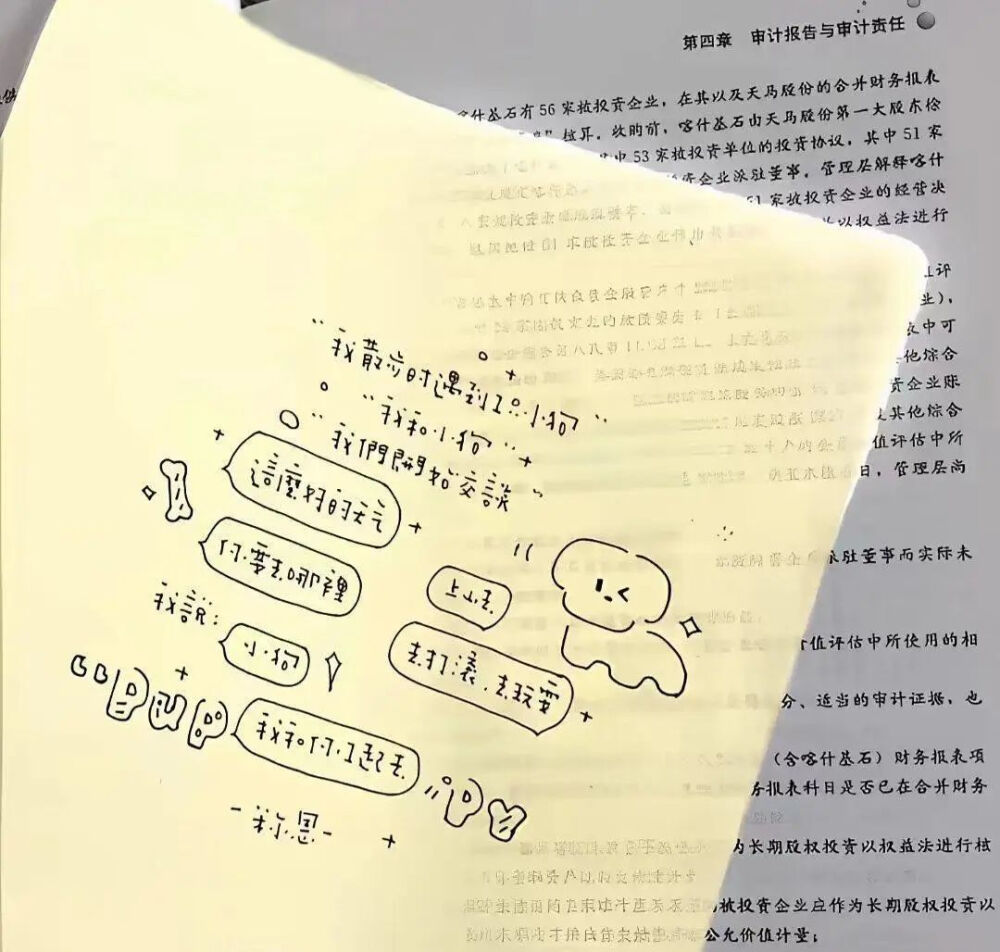 第四章 审计报告与审计责任
喀什基石有 56 家被投资企业，在其以及天马股份的合并财务报表
核算。收购前，喀什基石由天马股份第一大股东徐
中 53 家被投资单位的投资协议，其中 51 家
资企业派驻董事。管理层解释喀什
51 家被投资企业的经营决
以权益法进行
评
业），
中可
其他综合
资企业账
及其他综合
值评估中所
日，管理层尚
派驻董事而实际未
价值评估中所使用的相
分、适当的审计证据，也
（含喀什基石）财务报表项
务报表科目是否已在合并财务
为长期股权投资以权益法进行核
被投资企业应作为长期股权投资以
公允价值计量；
“我散步时遇到1只小狗”
“我和小狗”
“我們開始交談”
這麼好的天气
你要去哪裡
我說：
小狗
上山去
去打滾、去玩耍
我和你1起去